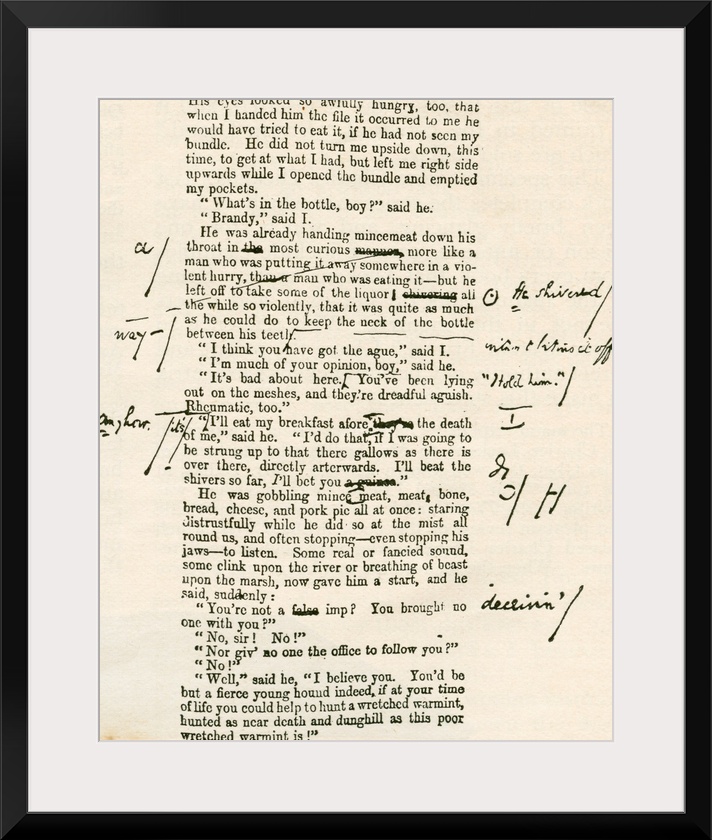 His eyes looked so awfully hungry, too, that
when I handed him the file it occurred to me he
would have tried to eat it, if he had not seen my
bundle. He did not turn me upside down, this
time, to get at what I had, but left me right side
upwards while I opened the bundle and emptied
my pockets.
"What's in the bottle, boy?" said he.
"Brandy," said I.
He was already handing mincemeat down his
a
throat in the most curious manner, more like a
man who was putting it away somewhere in a vio-
lent hurry, than a man who was eating it—but he
left off to take some of the liquor, shivering all
He shivered
the while so violently, that it was quite as much
way-
as he could do to keep the neck of the bottle
between his teeth.
it off
"I think you have got the ague," said I.
"I'm much of your opinion, boy," said he.
"It's bad about here. You've been lying
"Hold him."
out on the meshes, and they're dreadful aguish.
Rheumatic, too."
anyhow.
"I'll eat my breakfast afore they're the death
I
of me," said he. "I'd do that, if I was going to
be strung up to that there gallows as there is
over there, directly arterwards. I'll beat the
shivers so far, I'll bet you a guinea."
He was gobbling mince meat, meat, bone,
H
bread, cheese, and pork pie all at once: staring
distrustfully while he did so at the mist all
round us, and often stopping—even stopping his
jaws—to listen. Some real or fancied sound,
some clink upon the river or breathing of beast
upon the marsh, now gave him a start, and he
said, suddenly:
"You're not a false imp? You brought no
deceivin'
one with you?"
"No, sir! No!"
"Nor giv' no one the office to follow you?"
"No!"
"Well," said he, "I believe you. You'd be
but a fierce young hound indeed, if at your time
of life you could help to hunt a wretched warmint,
hunted as near death and dunghill as this poor
wretched warmint is!"